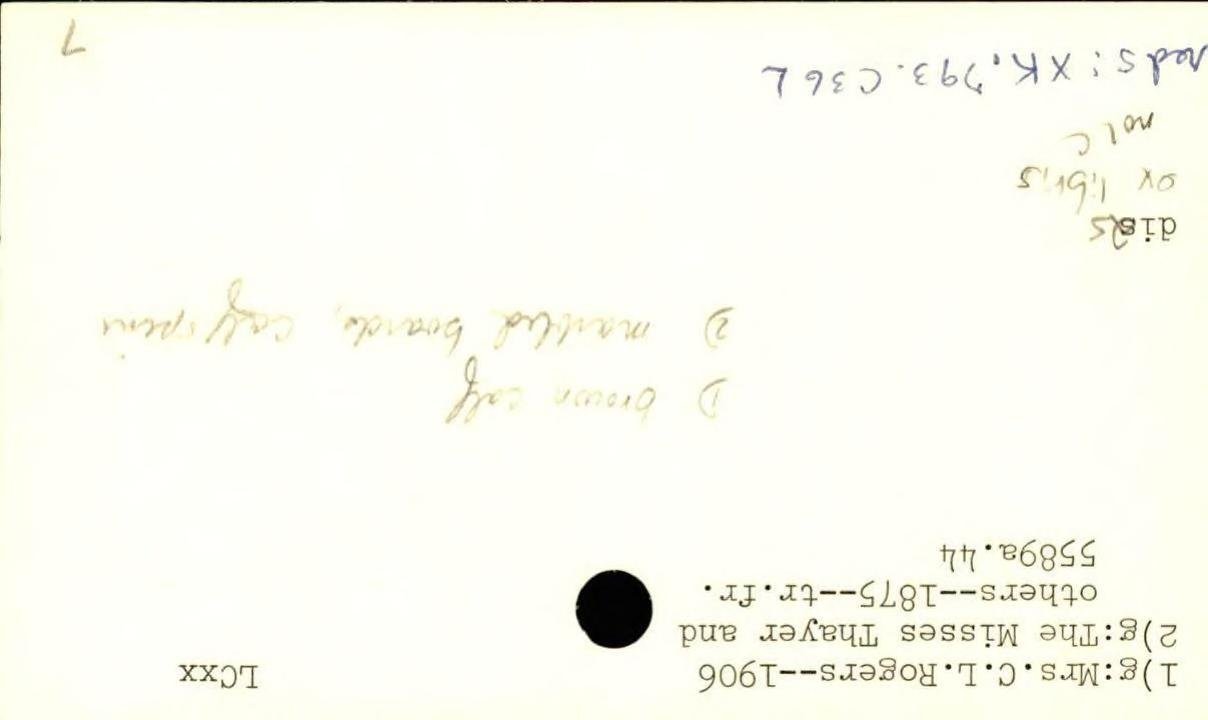 1)g:Mrs.C.L.Rogers--1906 LCxx
2)g:The Misses Thayer and
others--1875--tr.fr.
5589a.44
1) brown calf
2) marbled boards, calf spine
dis
ex libris
not C
reds: XK.793.C36L
7